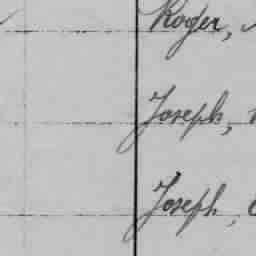 Roger,
Joseph,
Joseph,